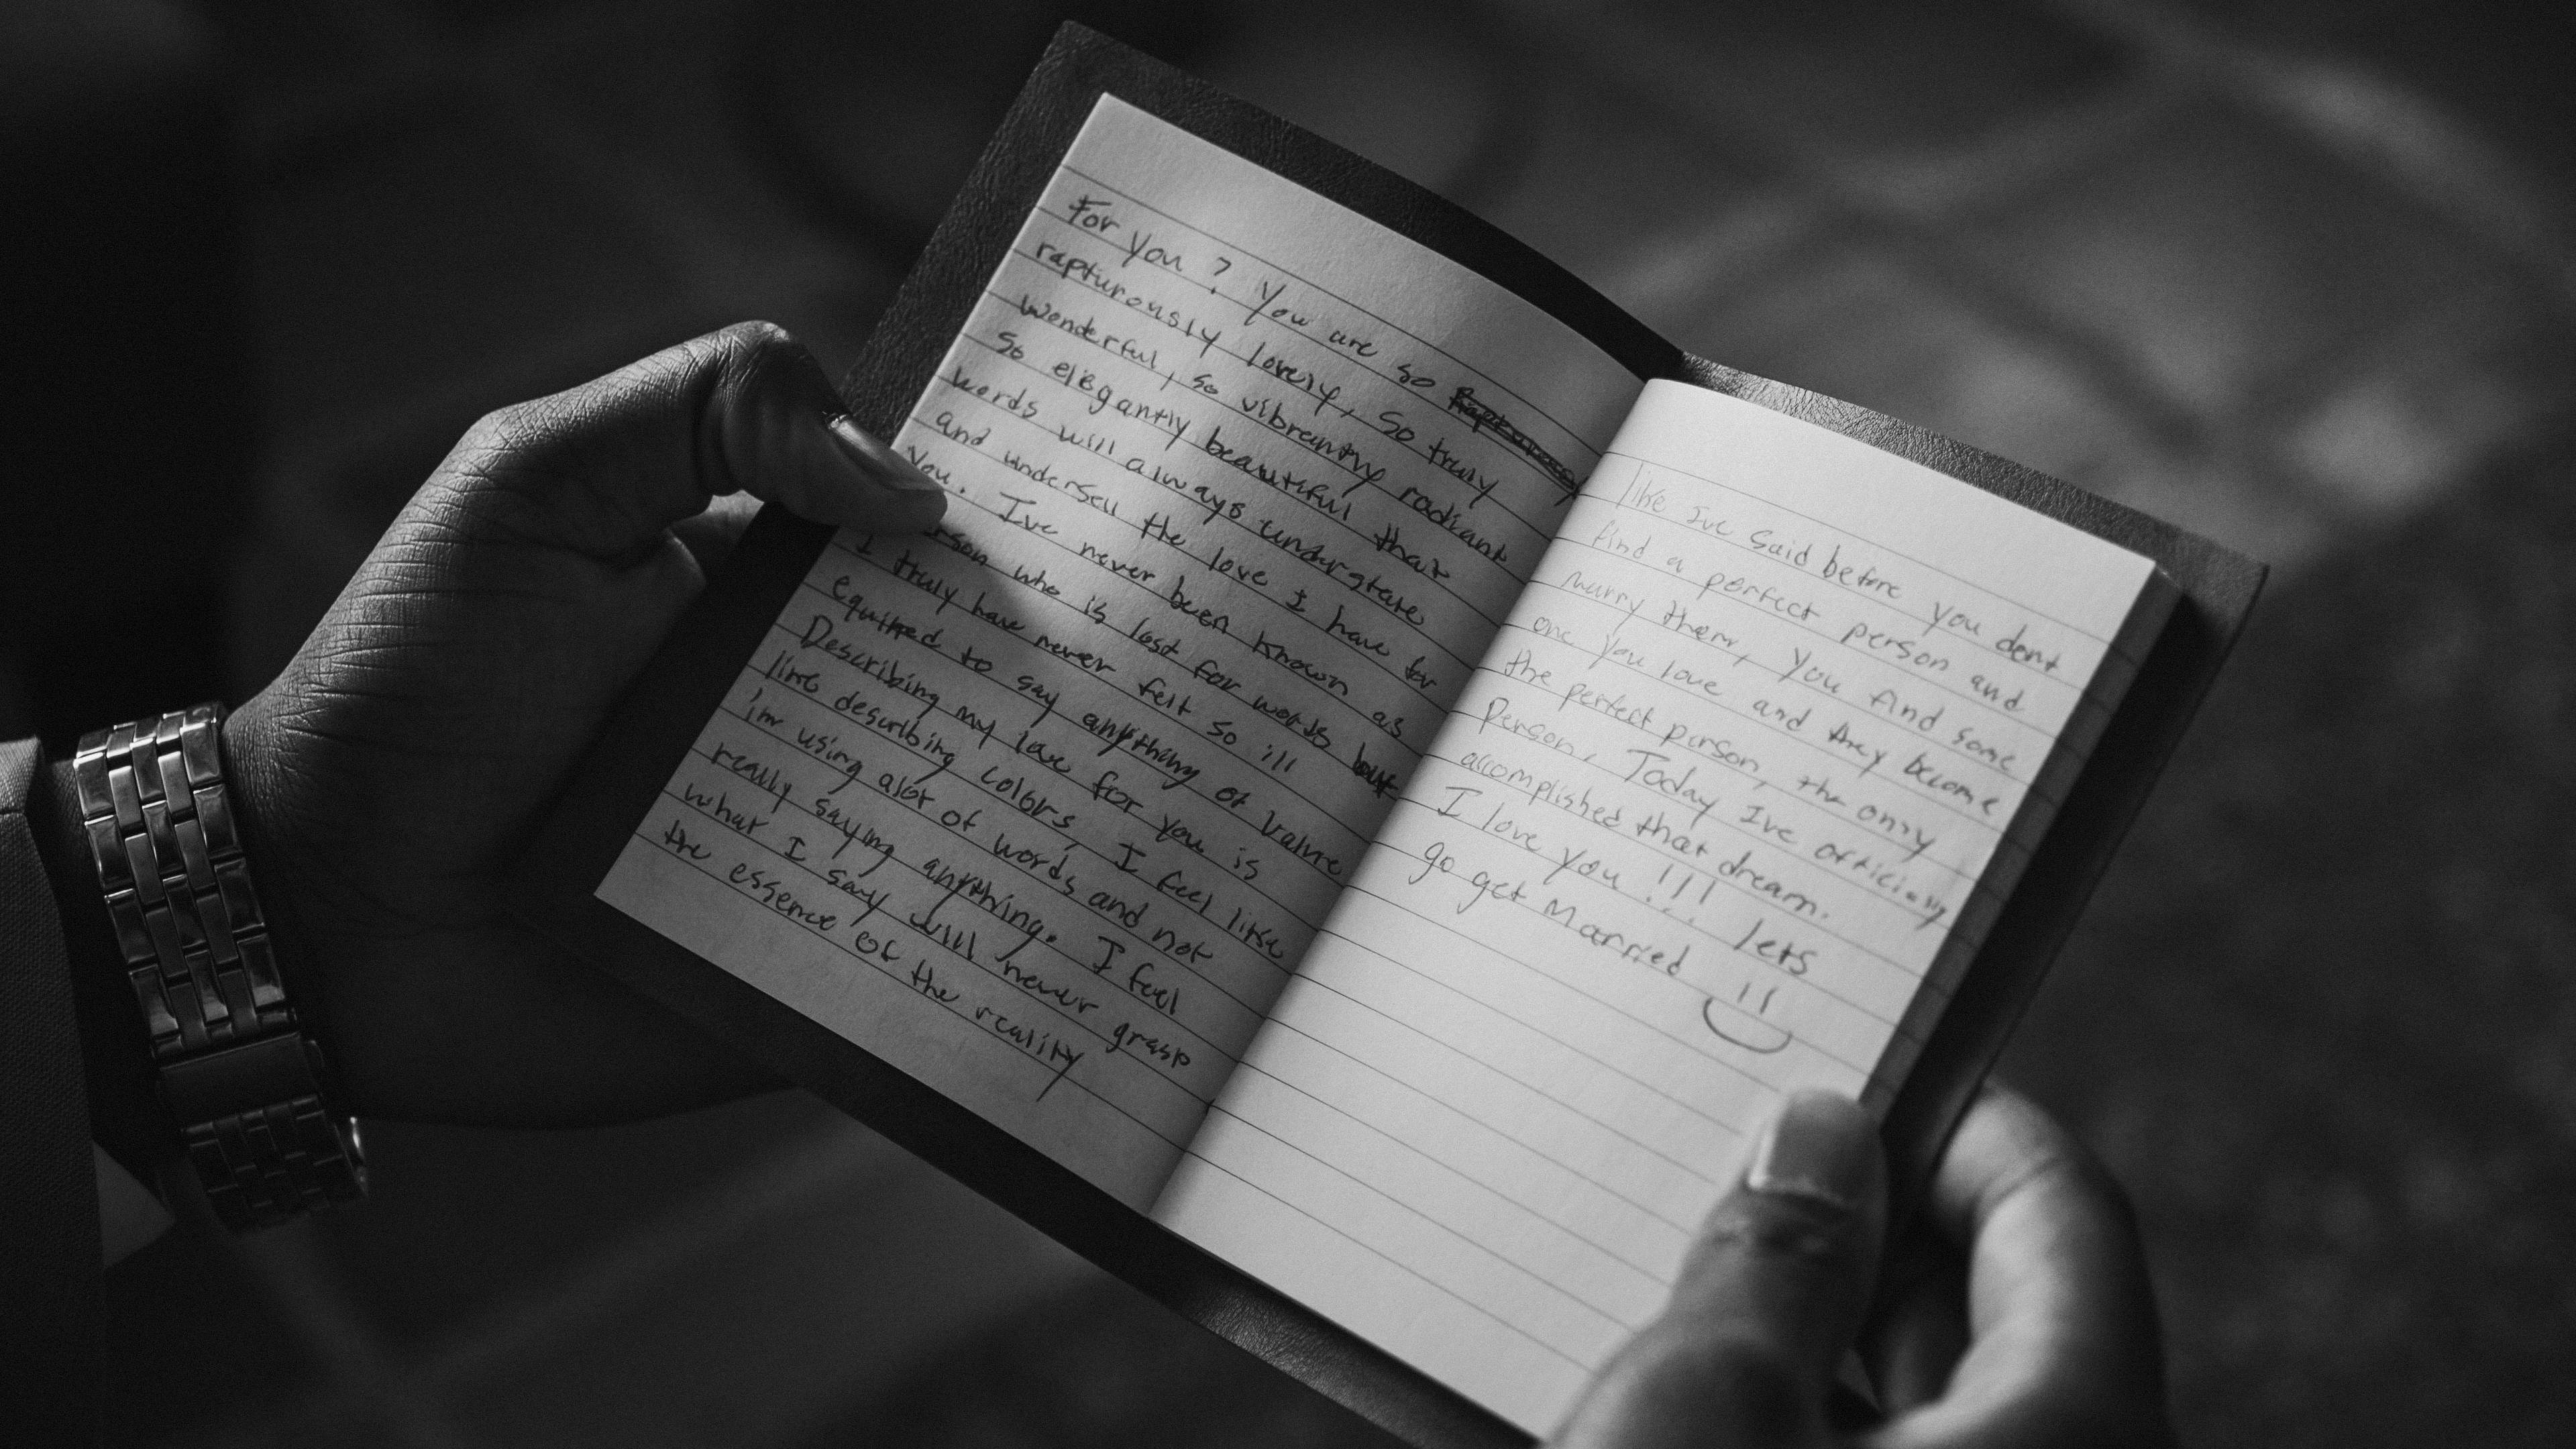 For you? You are so
rapturously lovely, so truly
wonderful, so vibrantly radiant
so elegantly beautiful that
words will always understate
and undersell the love I have for
you. Ive never been known as
who is lost for words but
I truly have never felt so ill
equipped to say anything of value
Describing my love for you is
like describing colors, I feel like
im using alot of words and not
really saying anything. I feel
what I say will never grasp
the essence of the reality
like Ive said before you dont
find a perfect person and
marry them, you find some
one you love and they become
the perfect person, the only
person. Today Ive officially
accomplished that dream.
I love you!!! lets
go get Married